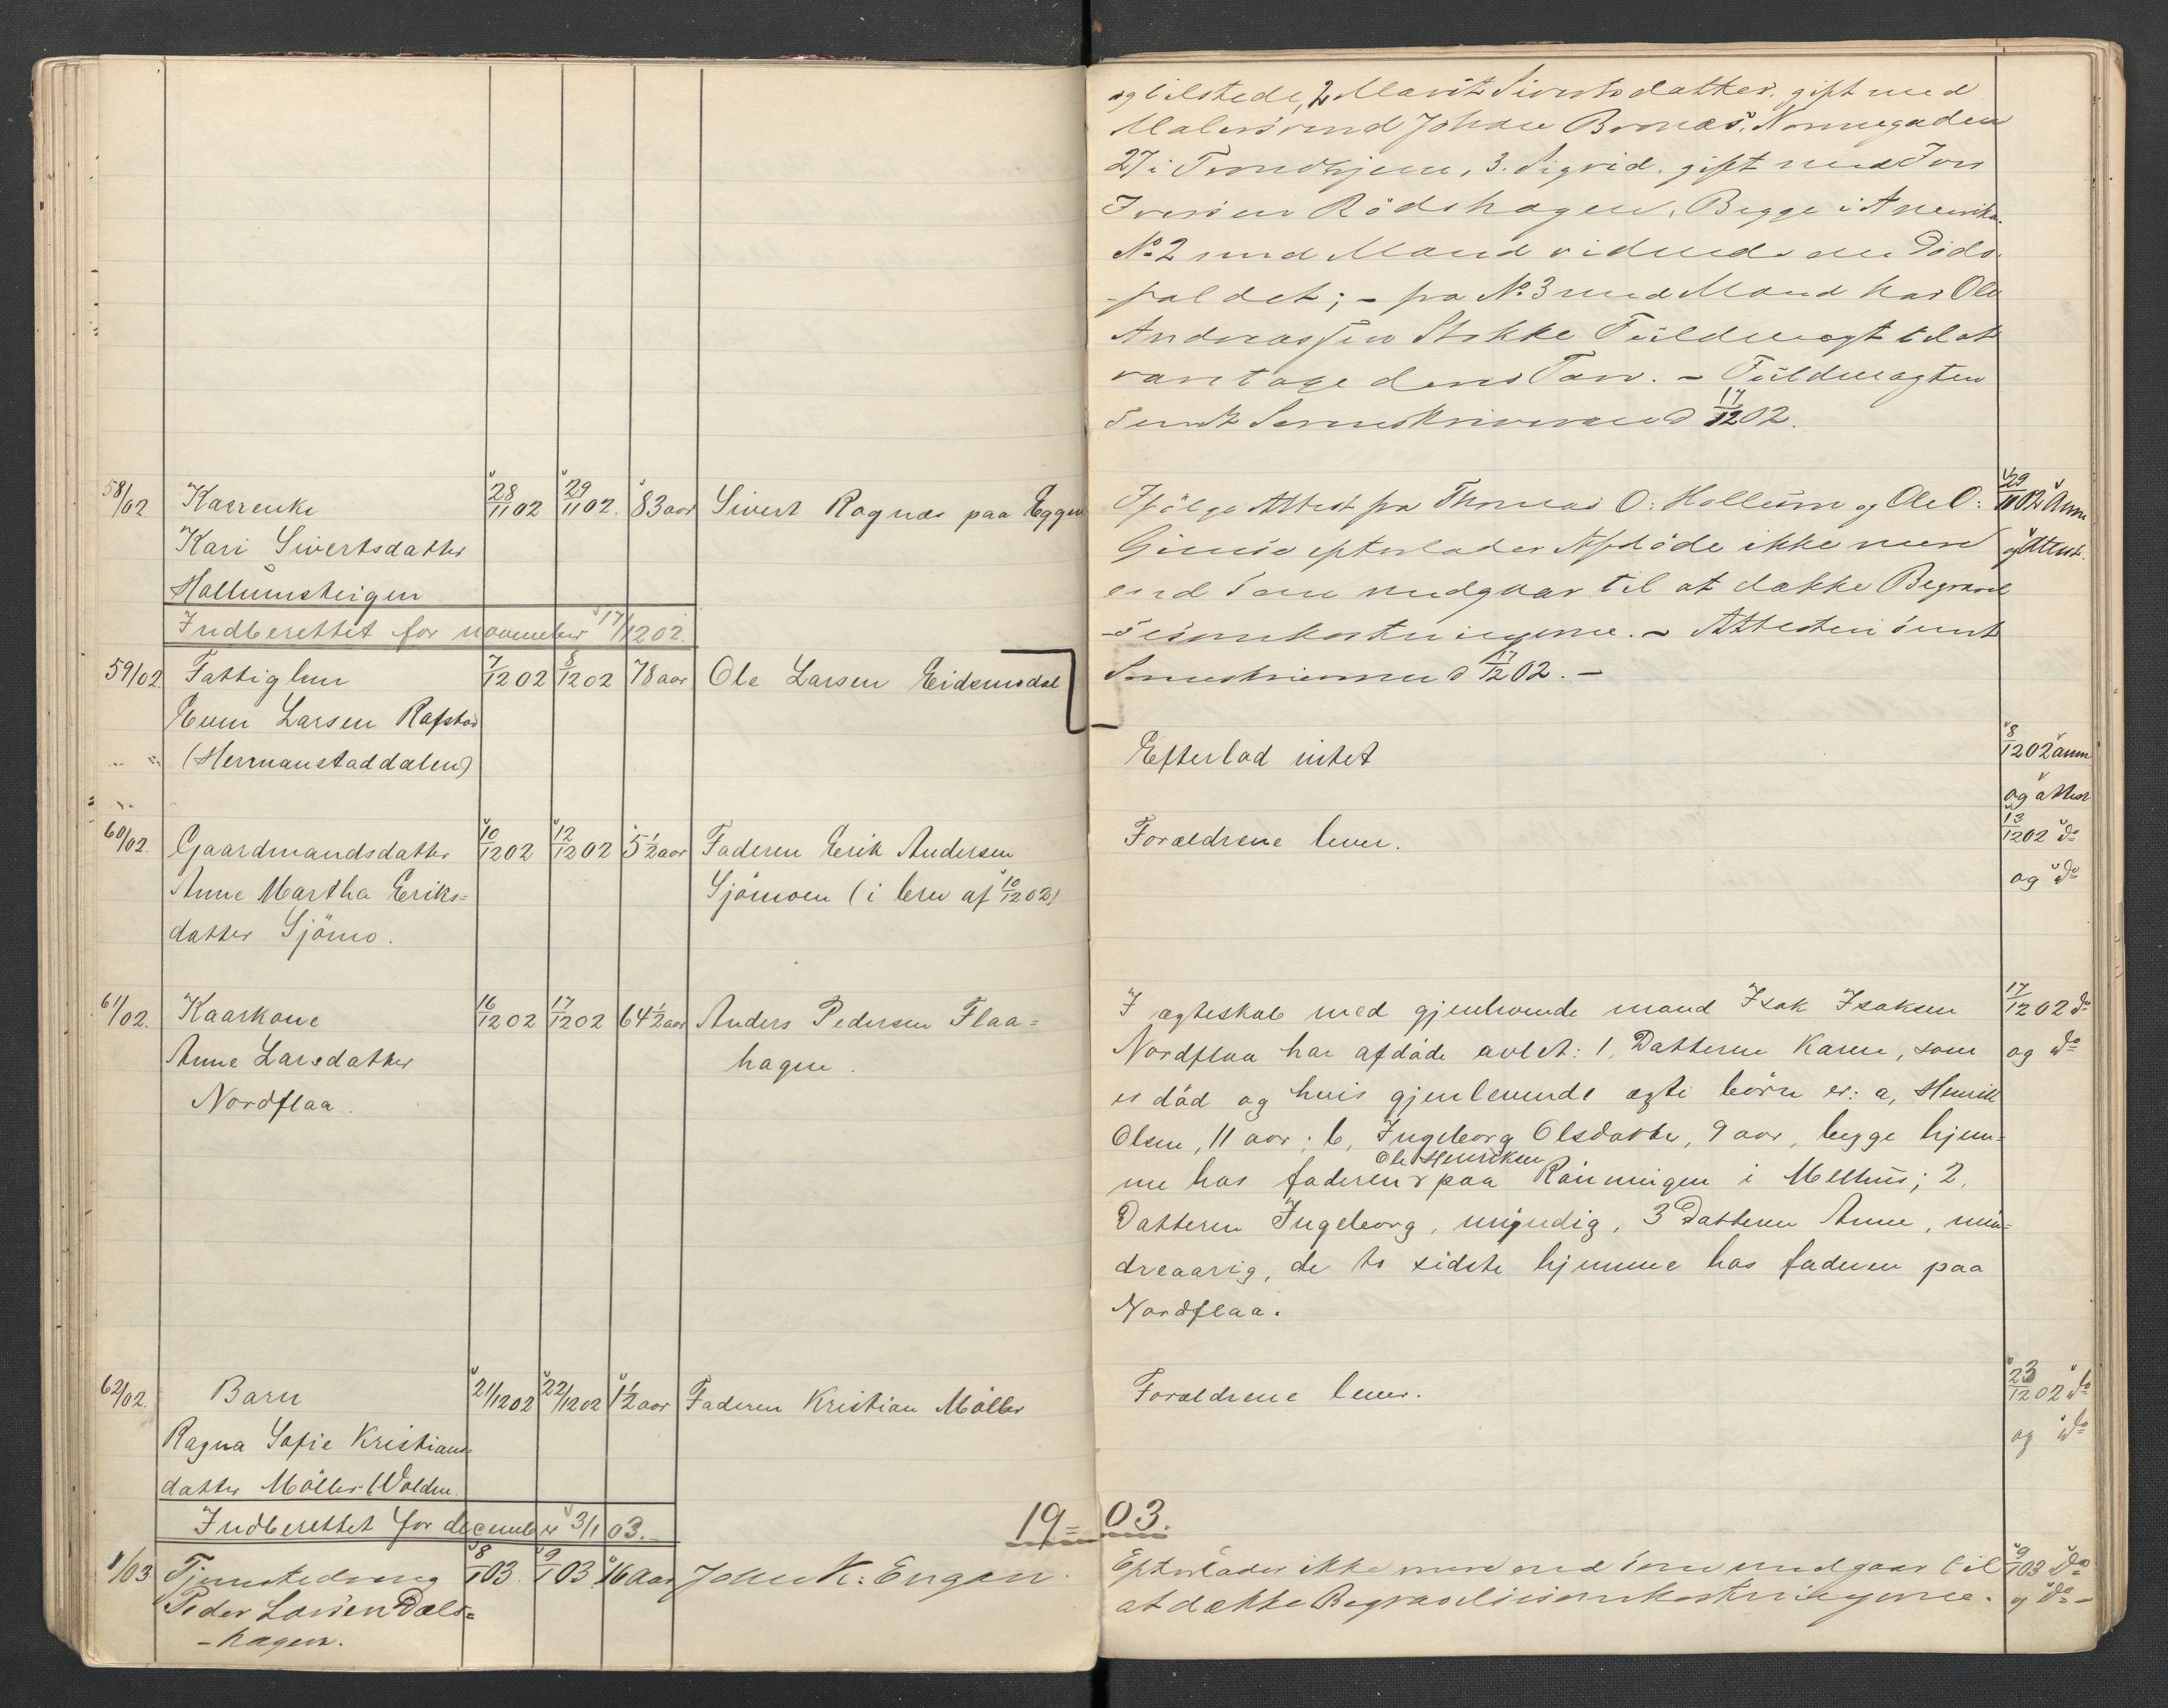 og tilstede, 2 Marit Sivertsdatter, gift med
Malersvend Johan Bornæs, Nonnegaden
27 i Trondhjem, 3. Sigrid, gift med Jon
Iversen Rödshagen, Begge i Amerika.
No 2 med Mand vidende om Döds-
-faldet; - fra No 3 med Mand har Ole
Andreassen Stokke Fuldmagt til at
varetage dens Tarv. - Fuldmagten
sendt Sorenskriveren d 17/12 02.
58/02. Kaarenke 28/11 02 29/11 02. 83 aar Sivert Ragnæs paa Eggen Ifölge Attest fra Thomas O: Hollum og Ole O: 29/11 02 Anm
Kari Sivertsdatter Gimse efterlader Afdöde ikke mere og Attest.
Hollumsteigen end som medgaar til at dække Begravel
Indberettet for november 17/12 02. -sesomkostningerne. - Attesten sendt
59/02. Fattiglem 7/12 02 8/12 02 78 aar Ole Larsen Eidsmodal Sorenskriveren d 17/12 02. -
Even Larsen Rafstad
(Hermanstaddalen) Efterlod intet 8/12 02 anm
og attest
60/02. Gaardmandsdatter 10/12 02 12/12 02 5 1/2 aar Faderen Erik Andersen Forældrene lever. 13/12 02 do
Anne Martha Eriks= Sjömoen (i brev af 10/12 02) og do
datter Sjömo.
61/02. Kaarkone 16/12 02 17/12 02 64 1/2 aar Anders Pedersen Flaa= I ægteskab med gjenlevende mand Isak Isaksen 17/12 02 do
Anne Larsdatter hagen. Nordflaa har afdöde avlet: 1, Datteren Karen, som og do
Nordflaa. er död og hvis gjenlevende ægte börn er: a, Henrik
Olsen, 11 aar; b, Ingeborg Olsdatter, 9 aar, begge hjem=
Ole Henriksen
me hos faderen paa Rönningen i Melhus; 2,
Datteren Ingeborg, umyndig, 3 Datteren Anne, min=
dreaarig, de to sidste hjemme hos faderen paa
Nordflaa.
62/02. Barn 21/12 02 22/12 02 1 1/2 aar Faderen Kristian Möller Forældrene lever. 23/12 02 do
Ragna Sofie Kristians= og do
datter Möller Volden.
Indberettet for december 3/1 03.
19=03.
1/03 Tjenestedreng 8/1 03. 9/1 03 16 aar John K: Engan. Efterlader ikke mere end som medgaar til 9/1 03 do
Peder Larsen Dals= at dække Begravelsesomkostningerne. og do -
-hagen.